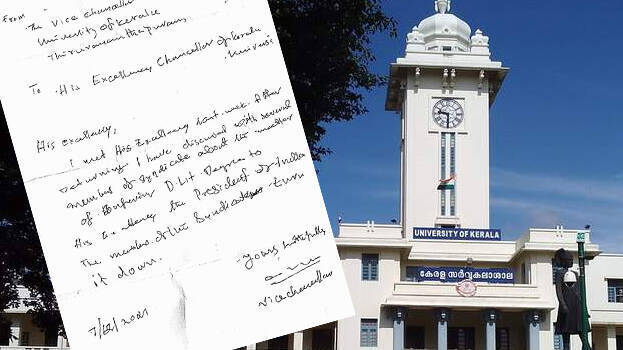 From The Vice chancellor
University of Kerala
Thiruvananthapuram,
To His Excellency Chancellor of Kerala
Universi
His excellency,
I met His Excellency last week. After
returning I have discussed with several
member of syndicate about the matter
of D.Lit Degree to
His Excellency the President of India
The members of the Syndicate turn
it down.
yours faithfully
Vice chancellor
7/12/2021
UNIVERSITY OF KERALA
കേരള സർവ്വകലാശാല